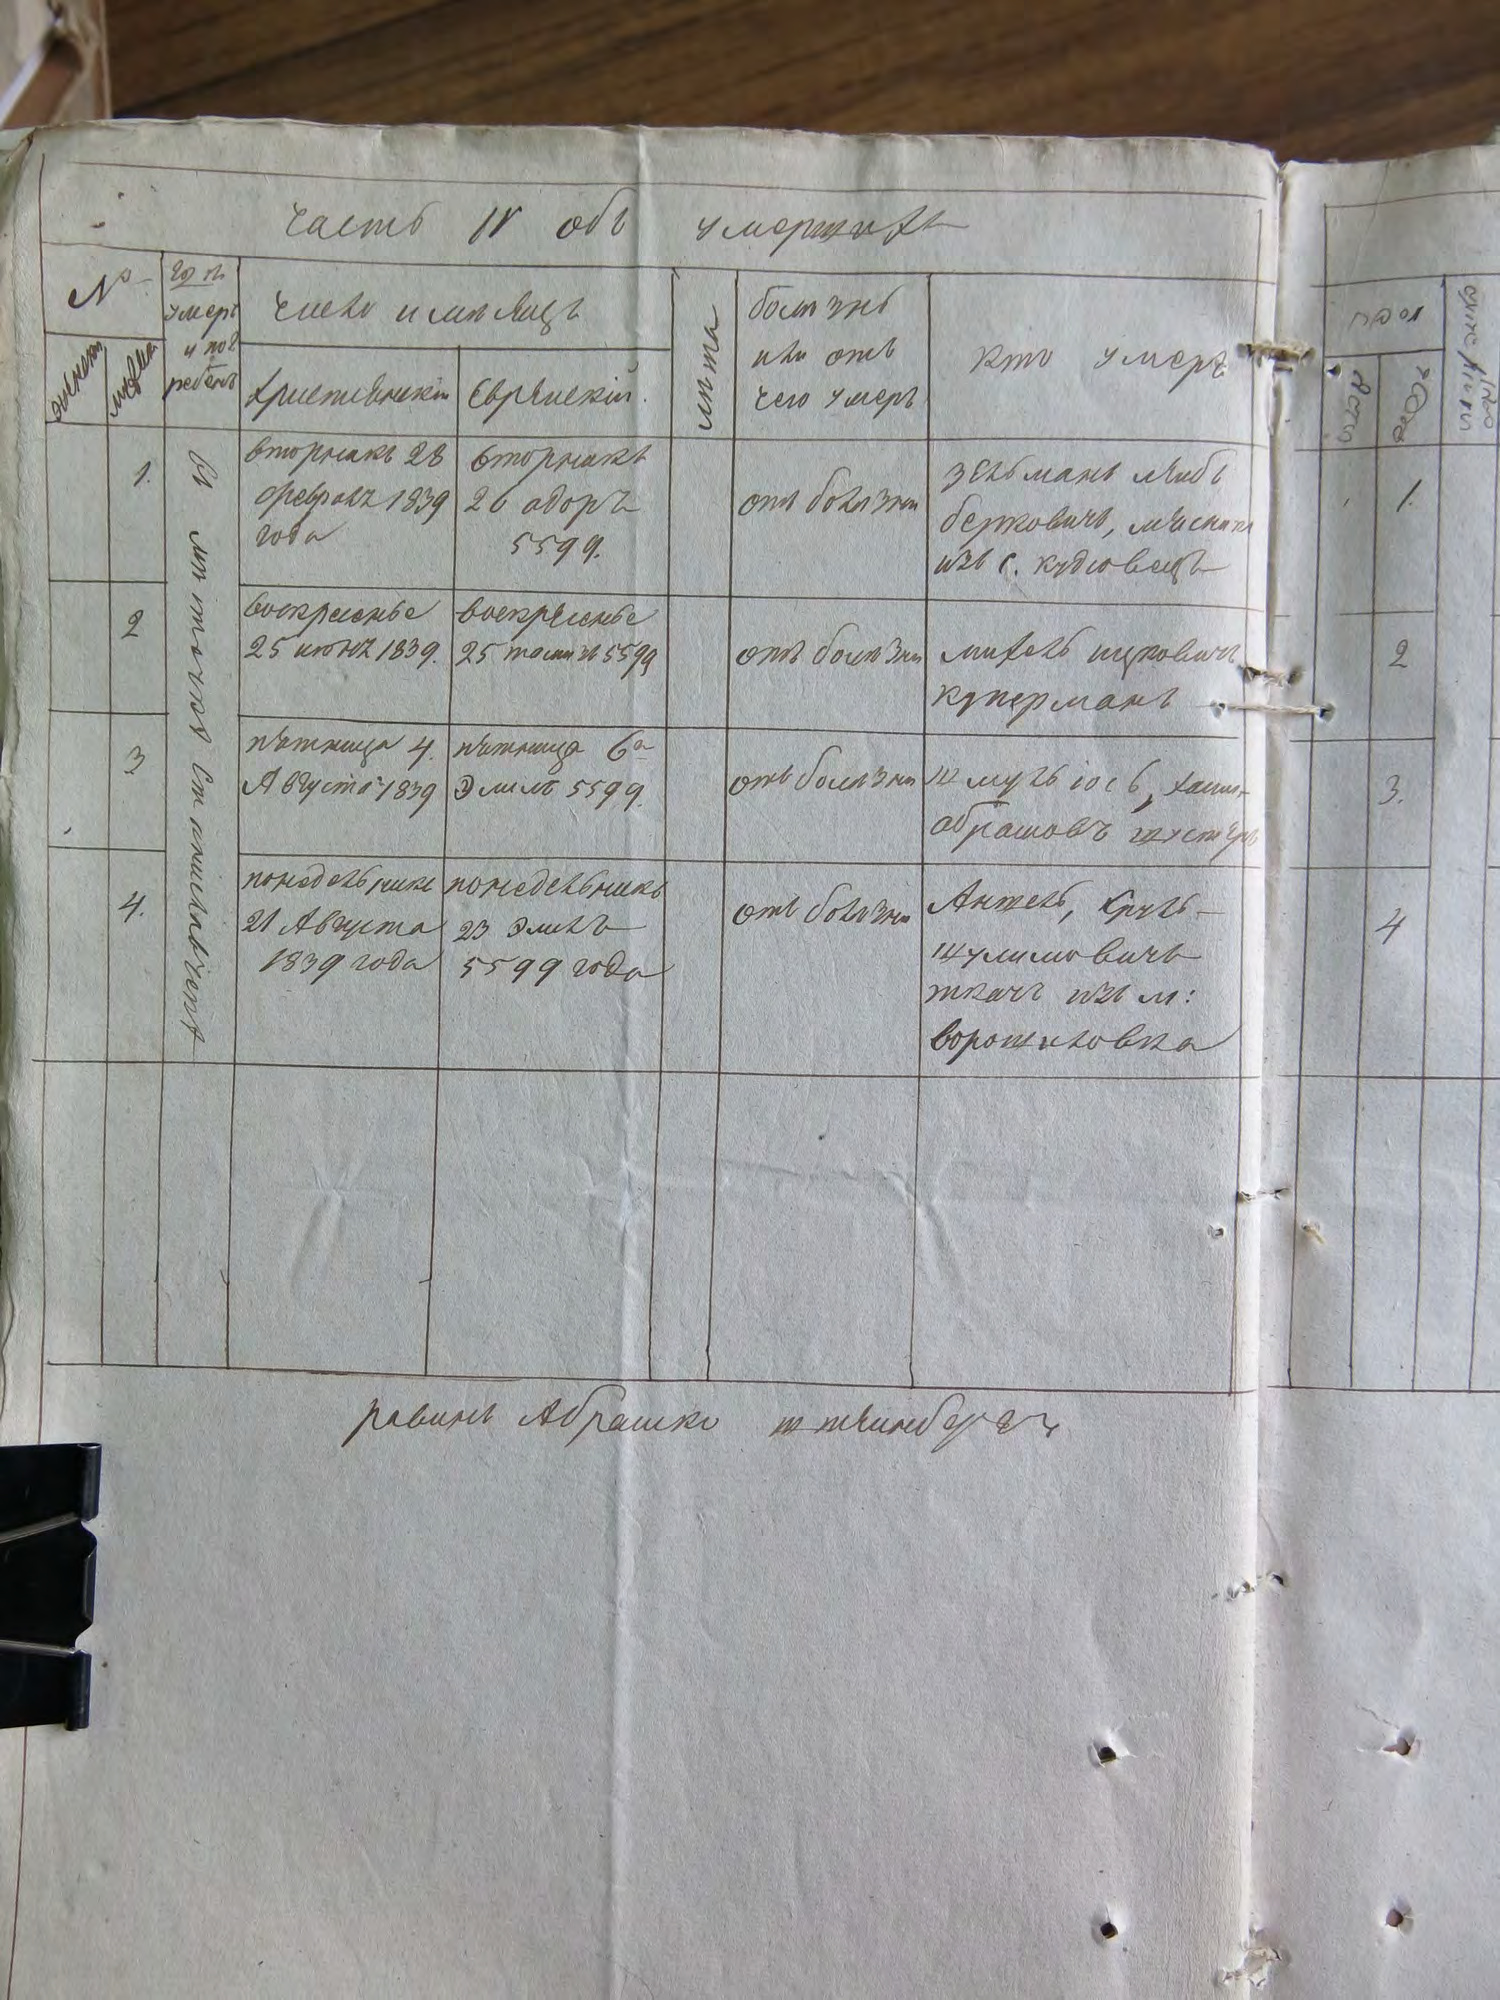 часть IV объ умершихъ
№
женска
мужеска
гдѣ
умеръ
и пог
ребенъ
число и мѣсяцъ
христіанскій
Еврейскій.
лѣта
болѣзнь
или отъ
чего умеръ
кто умеръ
1.
въ мѣстечкѣ
вторникъ 28
февраль 1839
года
вторникъ
26 адоръ
5599.
отъ болѣзни
Зельманъ лейбъ
берковичъ, мясникъ
изъ с. кудіовецъ
2
воскресенье
25 июнь 1839.
воскресенье
25 тамизъ 5599
отъ болѣзни
михель ицковичъ
куперманъ
3
пятница 4.
Августа 1839
пятница 6а
Элилъ 5599.
отъ болѣзни
шмуль іось, хаим
абрашовъ шустеръ
4.
понедельникъ
21 Августа
1839 года
понедельникъ
23 Элилъ
5599 года
отъ болѣзни
Антель, Сруль-
шулимовичъ
ткачъ изъ м:
ворошиловка
равинъ Абрашко штеинбергъ
полъ
1.
2
3.
4